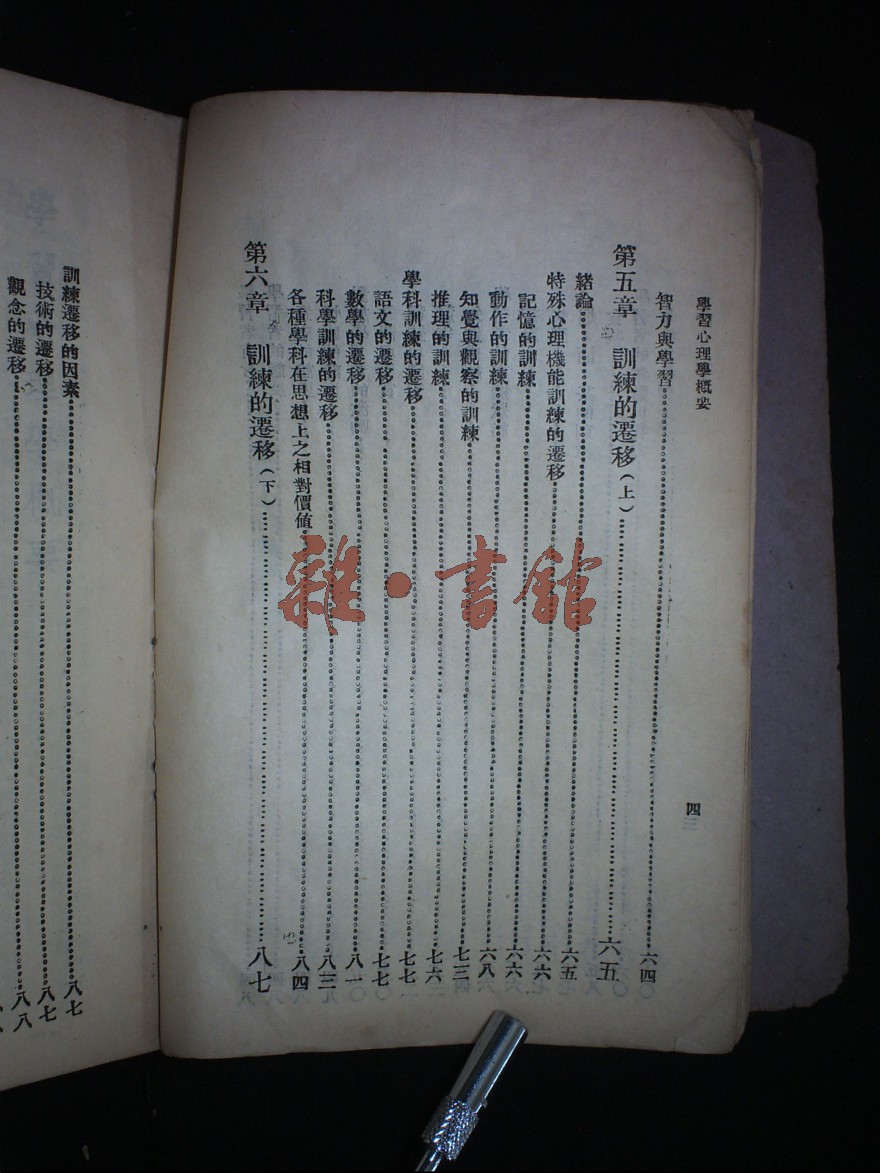 學習心理學概要
四
智力與學習 六四
第五章 訓練的遷移(上) 六五
緒論 六五
特殊心理機能訓練的遷移 六六
記憶的訓練 六六
動作的訓練 六八
知覺與觀察的訓練 七三
推理的訓練 七六
學科訓練的遷移 七七
語文的遷移 七七
數學的遷移 八一
科學訓練的遷移 八三
各種學科在思想上之相對價值 八四
第六章 訓練的遷移(下) 八七
訓練遷移的因素 八七
技術的遷移 八七
觀念的遷移 八八
雜·書館